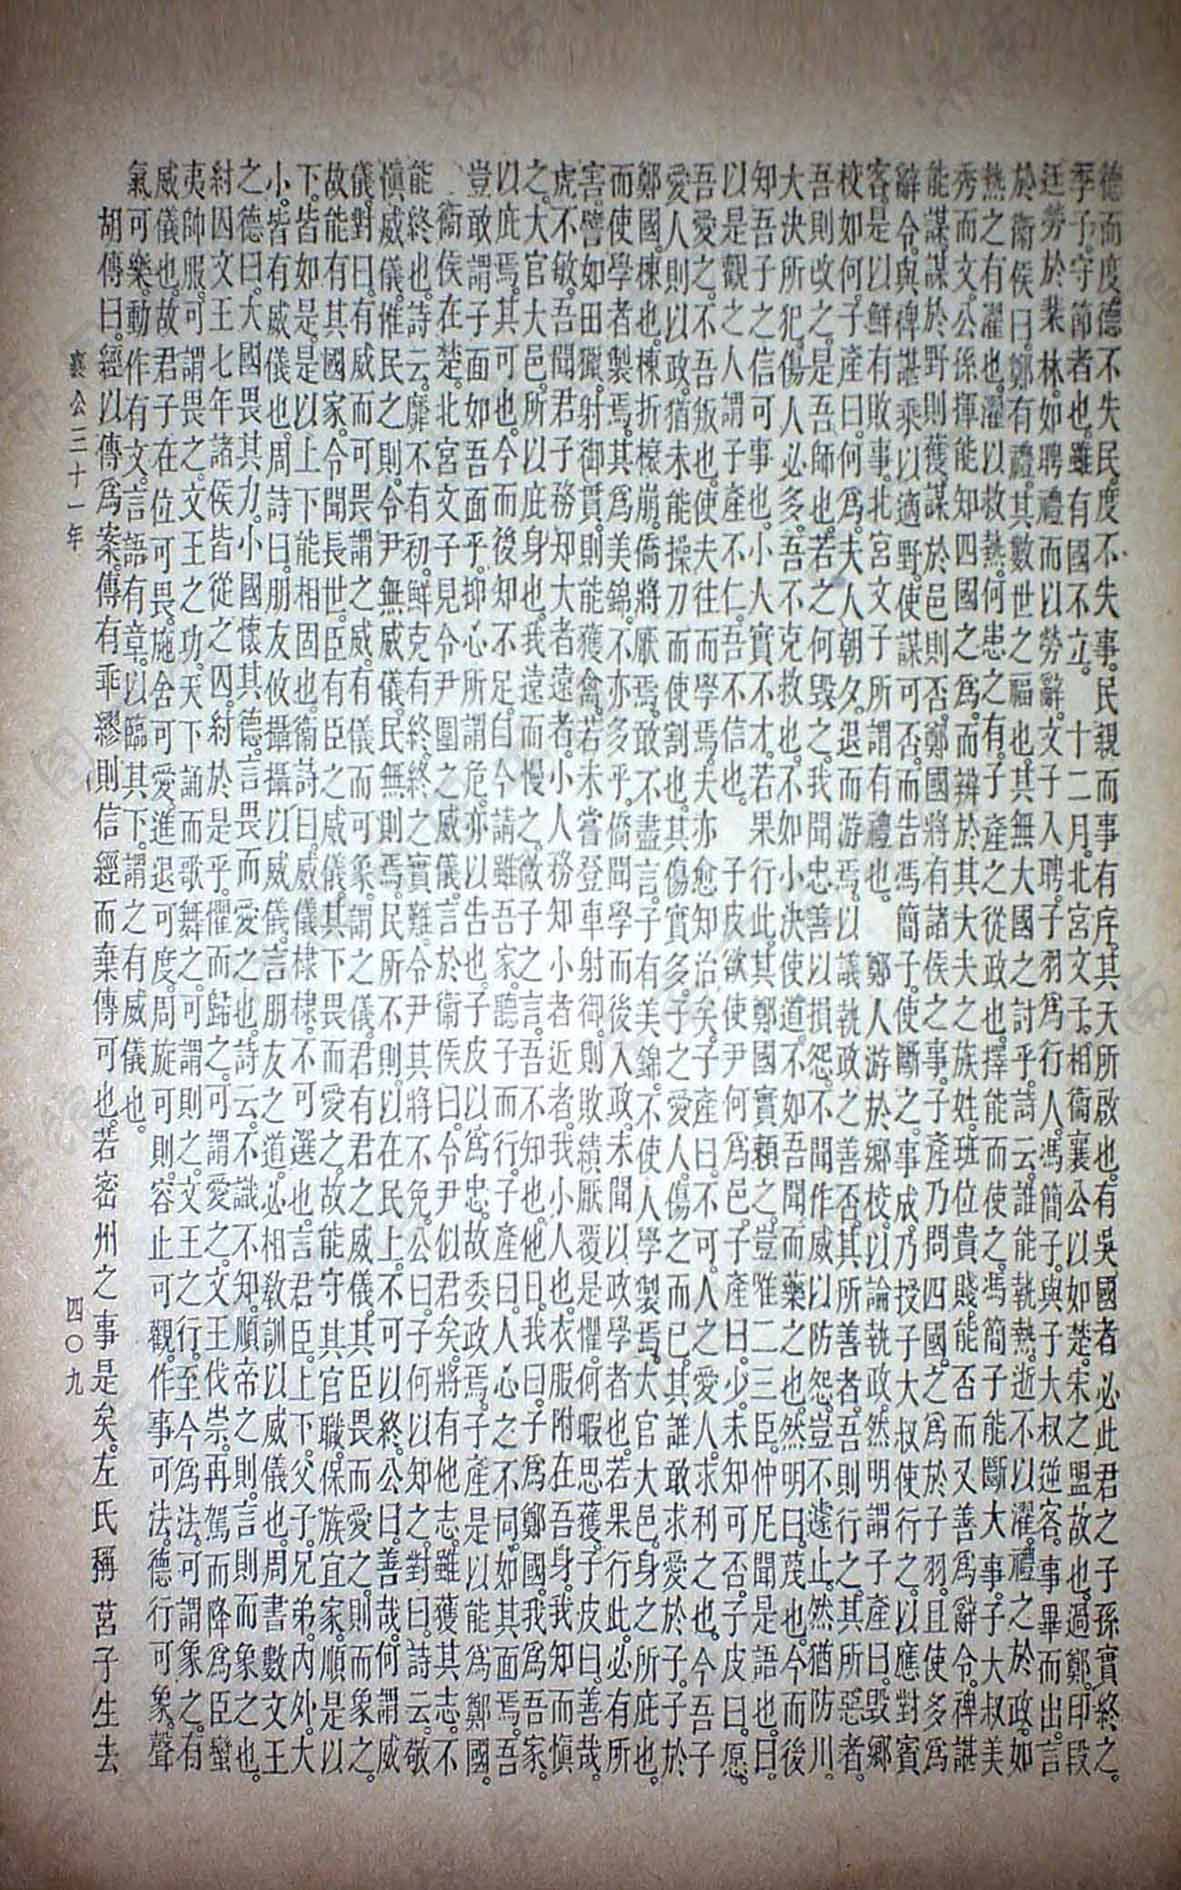 德而度。德不失民。度不失事。民親而事有序。其天所啟也。有吳國者。必此君之子孫實終之。
季子。守節者也。雖有國不立。　十二月。北宮文子。相衞襄公以如楚。宋之盟故也。過鄭。印段
迋勞於棐林。如聘禮而以勞辭。文子入聘。子羽爲行人。馮簡子。與子大叔逆客。事畢而出。言
於衞侯曰。鄭有禮。其數世之福也。其無大國之討乎。詩云。誰能執熱。逝不以濯。禮之於政。如
熱之有濯也。濯以救熱。何患之有。子產之從政也。擇能而使之。馮簡子能斷大事。子大叔美
秀而文。公孫揮能知四國之爲。而辨於其大夫之族姓。班位貴賤能否。而又善爲辭令。裨諶
能謀。謀於野則獲。謀於邑則否。鄭國將有諸侯之事。子產乃問四國之爲於子羽。且使多爲
辭令。與裨諶乘以適野。使謀可否。而告馮簡子。使斷之。事成。乃授子大叔使行之。以應對賓
客。是以鮮有敗事。北宮文子所謂有禮也。　鄭人游於鄉校。以論執政。然明謂子產曰。毀鄉
校如何。子產曰。何爲。夫人朝夕。退而游焉。以議執政之善否。其所善者。吾則行之。其所惡者。
吾則改之。是吾師也。若之何毀之。我聞忠善以損怨。不聞作威以防怨。豈不遽止。然猶防川。
大決所犯。傷人必多。吾不克救也。不如小決使道。不如吾聞而藥之也。然明曰。蔑也。今而後
知吾子之信可事也。小人實不才。若果行此。其鄭國實賴之。豈唯二三臣。仲尼聞是語也。曰。
以是觀之。人謂子產不仁。吾不信也。　子皮欲使尹何爲邑。子產曰。少。未知可否。子皮曰。愿。
吾愛之。不吾叛也。使夫往而學焉。夫亦愈知治矣。子產曰。不可。人之愛人。求利之也。今吾子
愛人則以政。猶未能操刀而使割也。其傷實多。子之愛人。傷之而已。其誰敢求愛於子。子於
鄭國。棟也。棟折榱崩。僑將厭焉。敢不盡言。子有美錦。不使人學製焉。大官大邑。身之所庇也。
而使學者製焉。其爲美錦。不亦多乎。僑聞學而後入政。未聞以政學者也。若果行此。必有所
害。譬如田獵。射御貫。則能獲禽。若未嘗登車射御。則敗績厭覆是懼。何暇思獲。子皮曰。善哉。
虎不敏。吾聞君子務知大者遠者。小人務知小者近者。我小人也。衣服附在吾身。我知而慎
之。大官大邑。所以庇身也。我遠而慢之。微子之言。吾不知也。他日我曰。子爲鄭國。我爲吾家。
以庇焉。其可也。今而後知不足。自今請雖吾家。聽子而行。子產曰。人心之不同。如其面焉。吾
豈敢謂子面如吾面乎。抑心所謂危。亦以告也。子皮以爲忠。故委政焉。子產是以能爲鄭國。
衞侯在楚。北宮文子見令尹圍之威儀。言於衞侯曰。令尹似君矣。將有他志。雖獲其志。不
能終也。詩云。靡不有初。鮮克有終。終之實難。令尹其將不免。公曰。子何以知之。對曰。詩云。敬
慎威儀。惟民之則。令尹無威儀。民無則焉。民所不則。以在民上。不可以終。公曰。善哉。何謂威
儀。對曰。有威而可畏謂之威。有儀而可象謂之儀。君有君之威儀。其臣畏而愛之。則而象之。
故能有其國家。令聞長世。臣有臣之威儀。其下畏而愛之。故能守其官職。保族宜家。順是以
下。皆如是。是以上下能相固也。衞詩曰。威儀棣棣。不可選也。言君臣。上下。父子。兄弟。內外。大
小。皆有威儀也。周詩曰。朋友攸攝。攝以威儀。言朋友之道。必相敎訓以威儀也。周書數文王
之德曰。大國畏其力。小國懷其德。言畏而愛之也。詩云。不識不知。順帝之則。言則而象之也。
紂囚文王七年。諸侯皆從之囚。紂於是乎懼而歸之。可謂愛之。文王伐崇。再駕而降爲臣。蠻
夷帥服。可謂畏之。文王之功。天下誦而歌舞之。可謂則之。文王之行。至今爲法。可謂象之。有
威儀也。故君子在位可畏。施舍可愛。進退可度。周旋可則。容止可觀。作事可法。德行可象。聲
氣可樂。動作有文。言語有章。以臨其下。謂之有威儀也。
胡傳曰。經以傳爲案。傳有乖繆。則信經而棄傳可也。若密州之事是矣。左氏稱莒子生去
襄公三十一年
四〇九